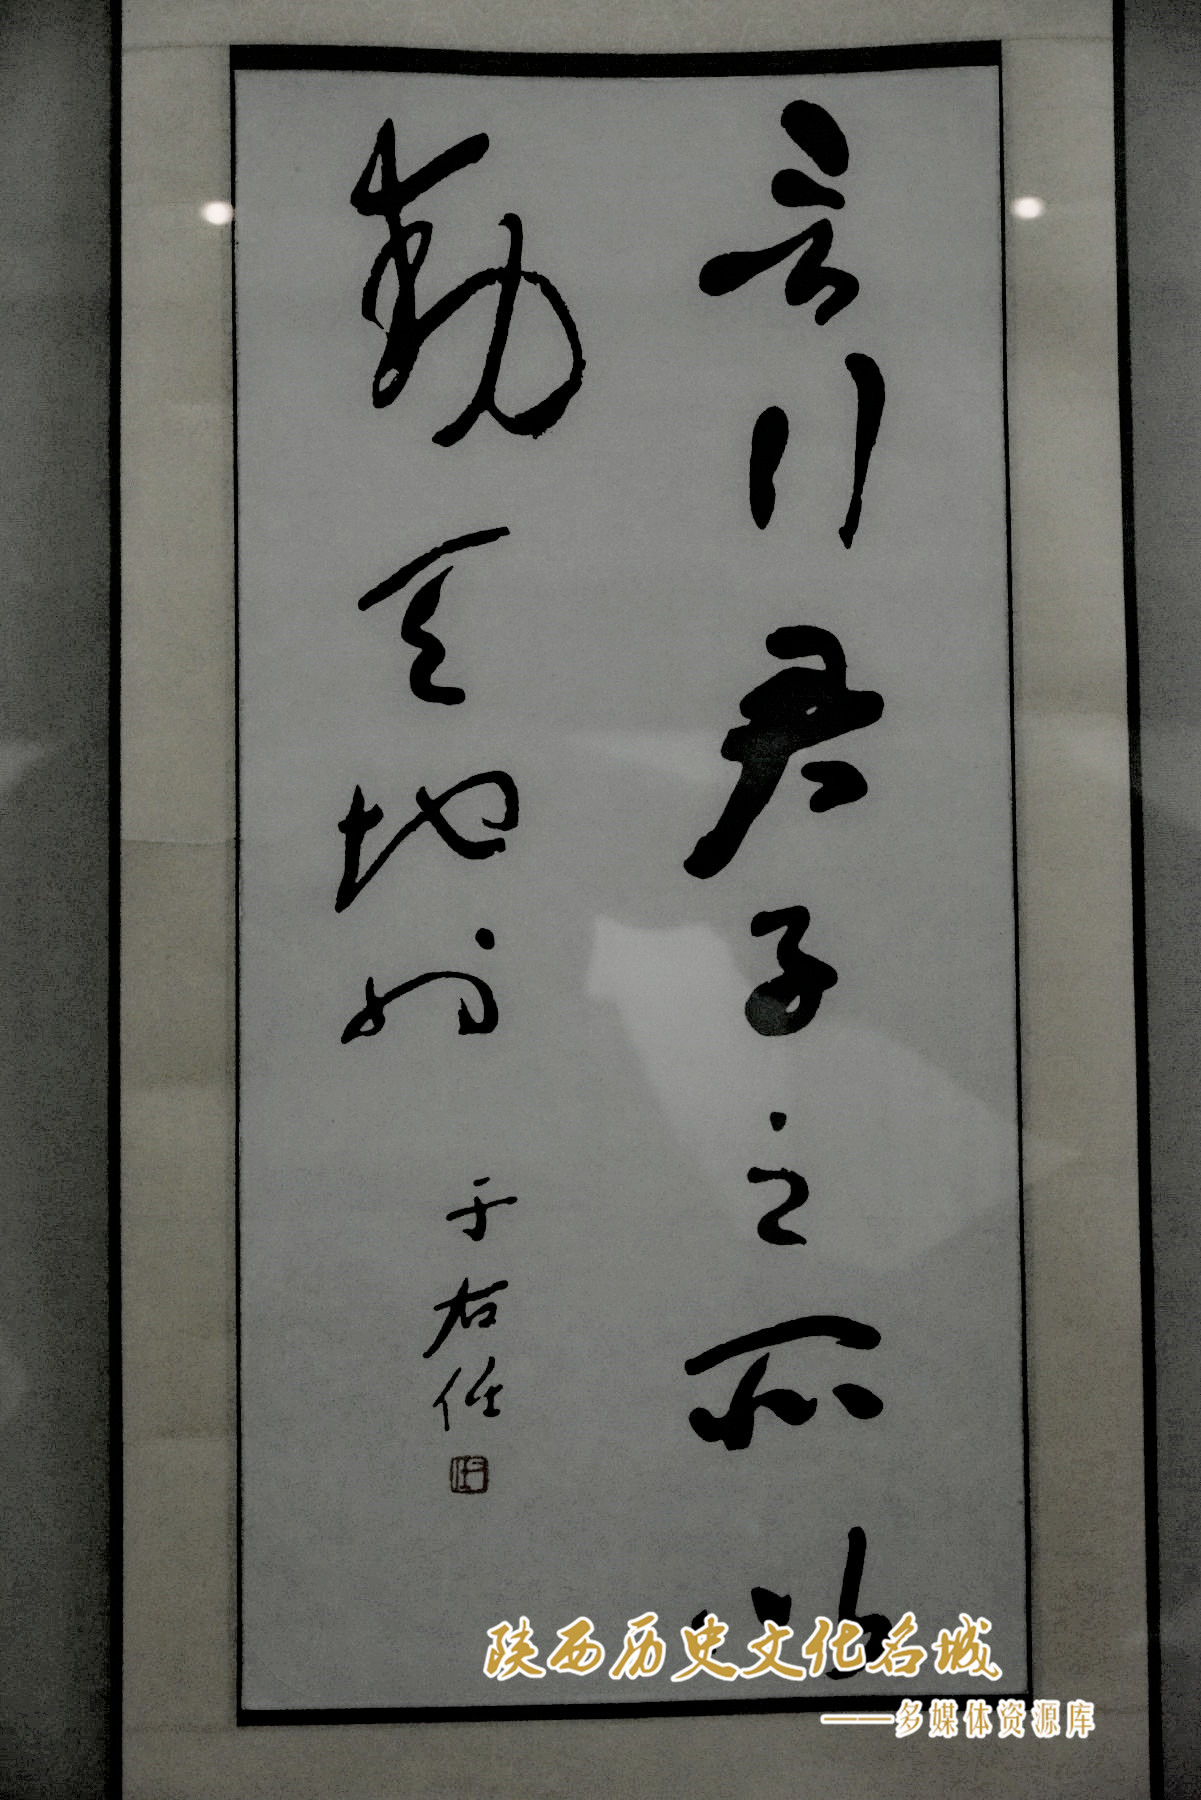 言行君子之所以
動天地也
于右任
陕西历史文化名城
——多媒体资源库